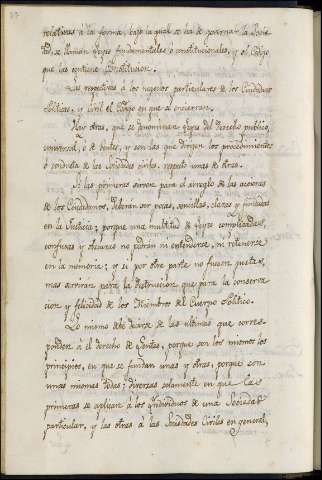 relativas á la forma, bajo la qual se ha de governar la Socie
dad, se llaman Leyes fundamentales ó constitucionales, y el Codigo
que las contiene Constitucion.
Las respectivas á los negocios particulares de los Ciudadanos
Politicas, y Civil el Codigo en que se encierran.
Hay otras, que se denominan Leyes del derecho publico
universal, ó de Gentes, y son las que dirigen los procedimientos
ó conducta de las Sociedades civiles, respecto unas de otras.
Si las primeras sirven para el arreglo de las acciones
de los Ciudadanos, deberán ser pocas, sencillas, claras y fundadas
en la Justicia; porque una multitud de Leyes complicadas,
confusas y obscuras no podran ni entenderse, ni retenerse
en la memoria; y si por otra parte no fuesen justas,
mas servirán para la destruccion que para la conserva
cion y felicidad de los Miembros del Cuerpo Politico.
Lo mismo debe decirse de las ultimas que corres
ponden á el derecho de Gentes, porque son los mismos los
principios, en que se fundan unas y otras, porque son
unas mismas todas; diversas solamente en que las
primeras se aplican á los Yndividuos de una Sociedad
particular, y las otras á las Sociedades Civiles en general,